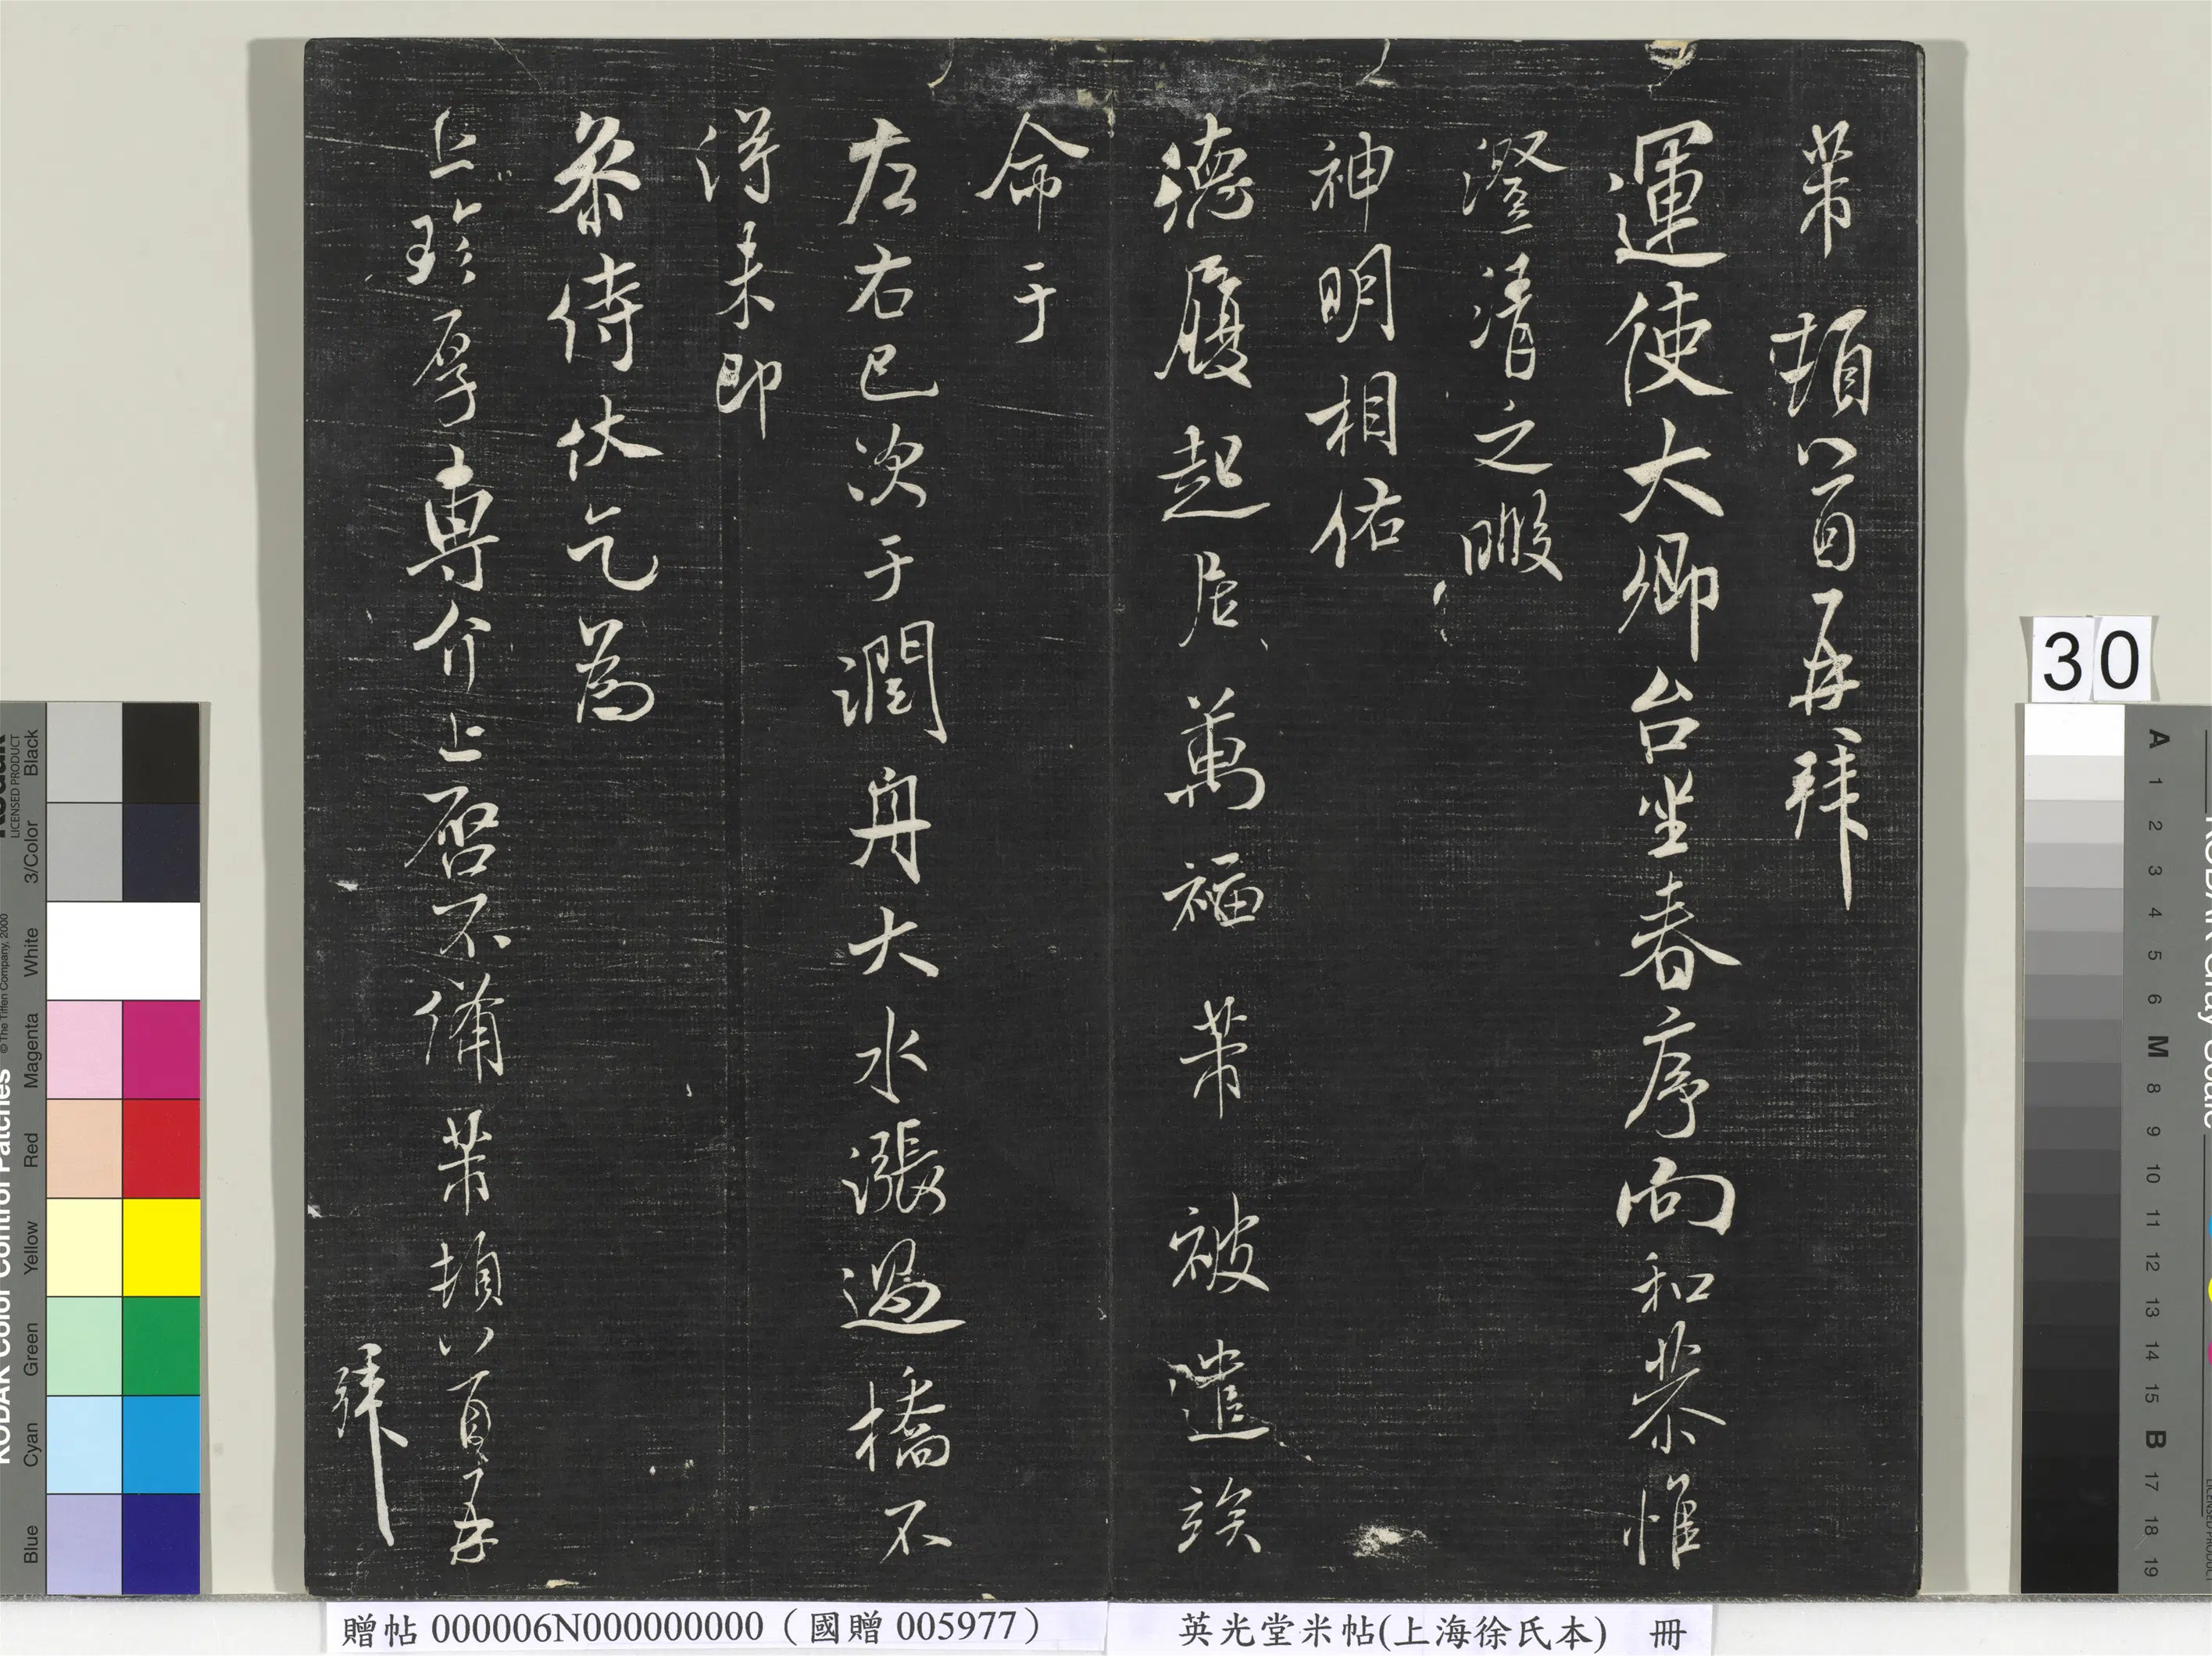 芾頓首再拜
運使大卿台坐春序向和恭惟
澄清之暇
神明相佑
德履起居萬福芾被遣竢
命于
左右已次于潤舟大水漲過橋不
得未即
叅侍伏乞為
上珍厚專介上啓不備芾頓首再
拜
30
贈帖 000006N000000000（國贈 005977）
英光堂米帖(上海徐氏本) 冊
KODAK Color Control Patches
© The Tiffen Company, 2000
LICENSED PRODUCT
Blue
Cyan
Green
Yellow
Red
Magenta
White
3/Color
Black
A 1 2 3 4 5 6 M 8 9 10 11 12 13 14 15 B 17 18 19